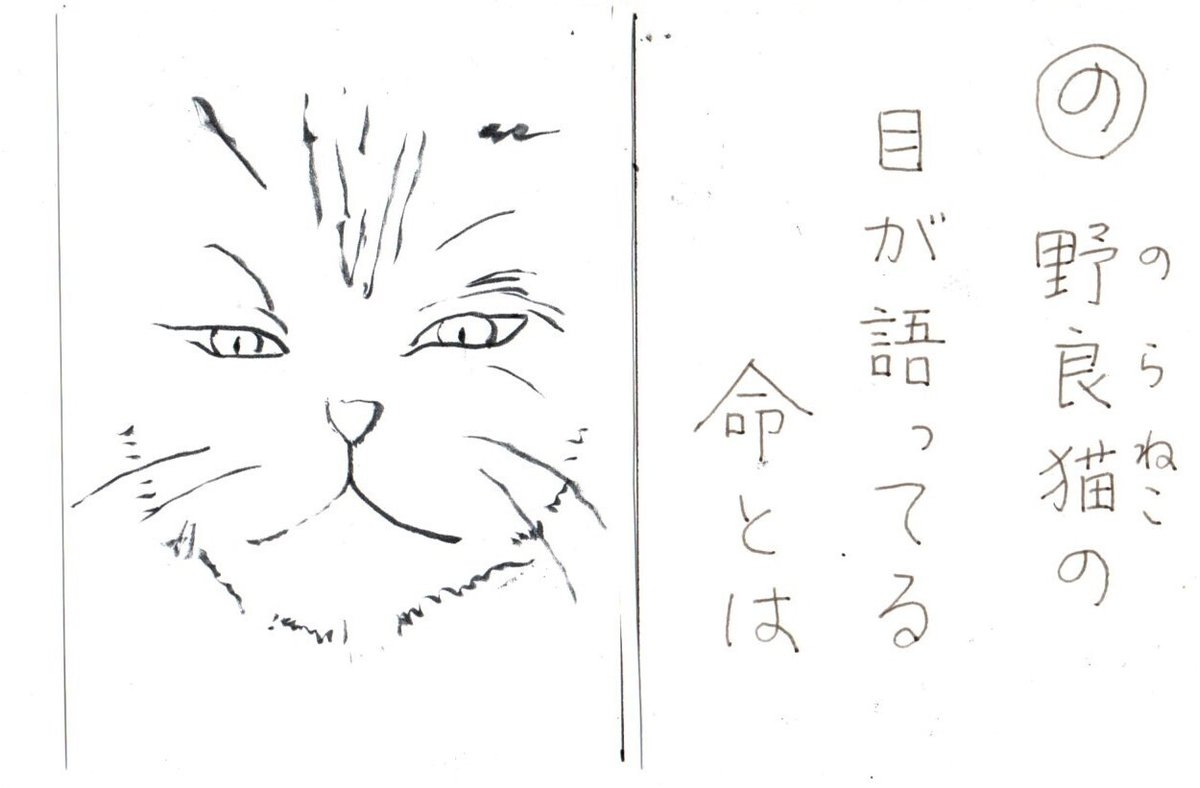 の
野良猫の
のらねこ
目が語ってる
命とは